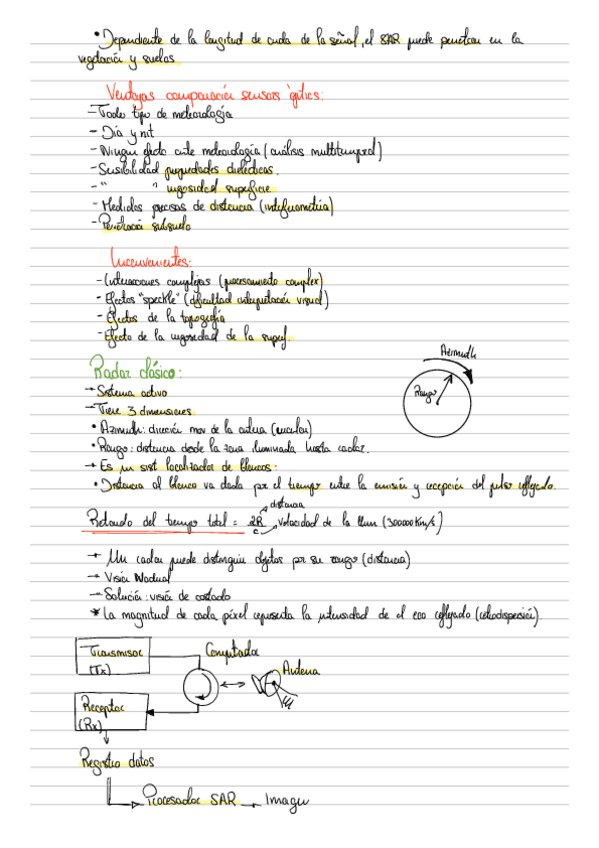 • Dependiente de la longitud de onda de la señal, el SAR puede penetrar en la
vegetación y suelos
Ventajas comparación sensors òptics:
- Todo tipo de meteorología
- Día y nit
- Ningun efecto ante meteorología (análisis multitemporal)
- Sensibilidad propiedades dieléctricas.
- " " rugosidad superficie
- Medidas precisas de distancia (interferometría)
- Penetración subsuelo
Inconvenientes:
- Interacciones complejas (procesamiento complex)
- Efectos "speckle" (dificultad interpretación visual)
- Efectos de la topografía
- Efecto de la rugosidad de la superf.
Azimuth
Rango
Radar clásico:
→ Sistema activo
→ Tiene 3 dimensiones
• Azimuth: dirección mov de la antena (circular)
• Rango: distancia desde la zona iluminada hasta radar.
→ Es un sist localizador de blancos:
• Distancia al blanco va dada por el tiempo entre la emisión y recepción del pulso reflejado.
Retardo del tiempo total = 2R/c → distancia → Velocidad de la llum (300000 Km/s)
→ Un radar puede distinguir objetos por su rango (distancia)
→ Visión Nadual
→ Solución: visión de costado
* La magnitud de cada píxel representa la intensidad de el eco reflejado (retrodispersión).
Transmisor
(Tx)
Conmutador
Antena
Receptor
(Rx)
Registro datos
Procesador SAR → Imagen